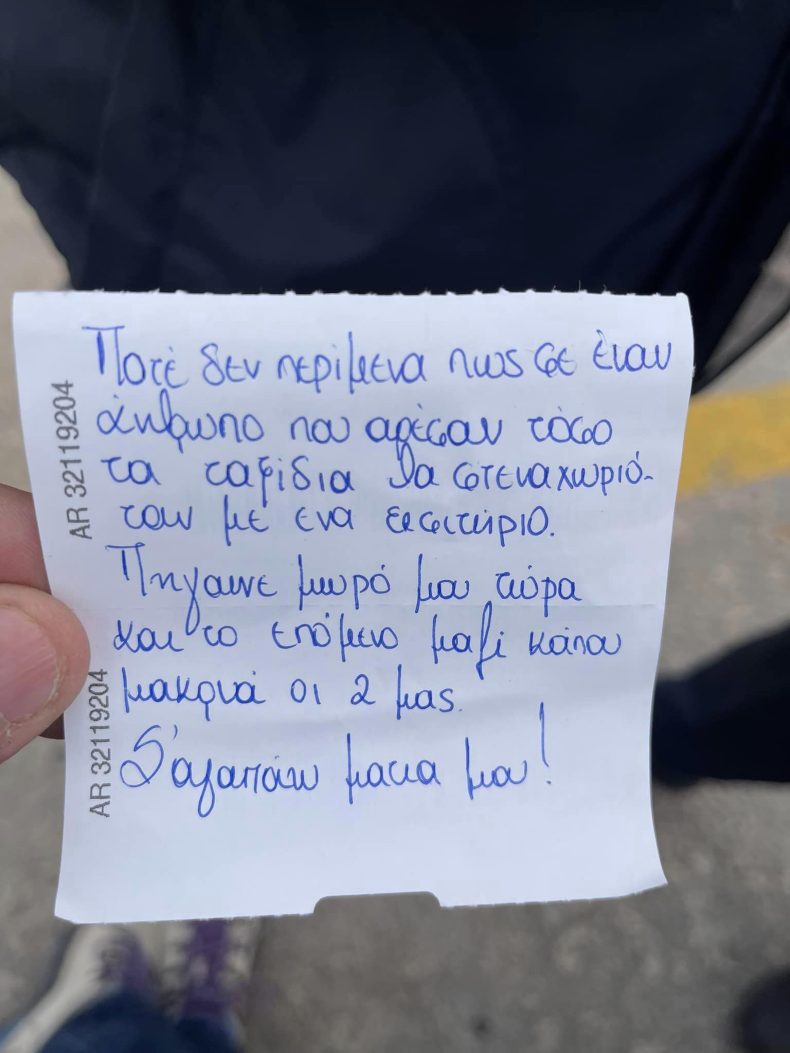 Ποτέ δεν περίμενα πως σε έναν
άνθρωπο που αρέσαν τόσο
τα ταξίδια θα στεναχωριό-
ταν με ενα εισιτήριο.
Πηγαινε μωρό μου τώρα
και το επόμενο μαζί κάπου
μακριά οι 2 μας.
Σ'αγαπάω μακια μου!
AR 32119204
AR 32119204